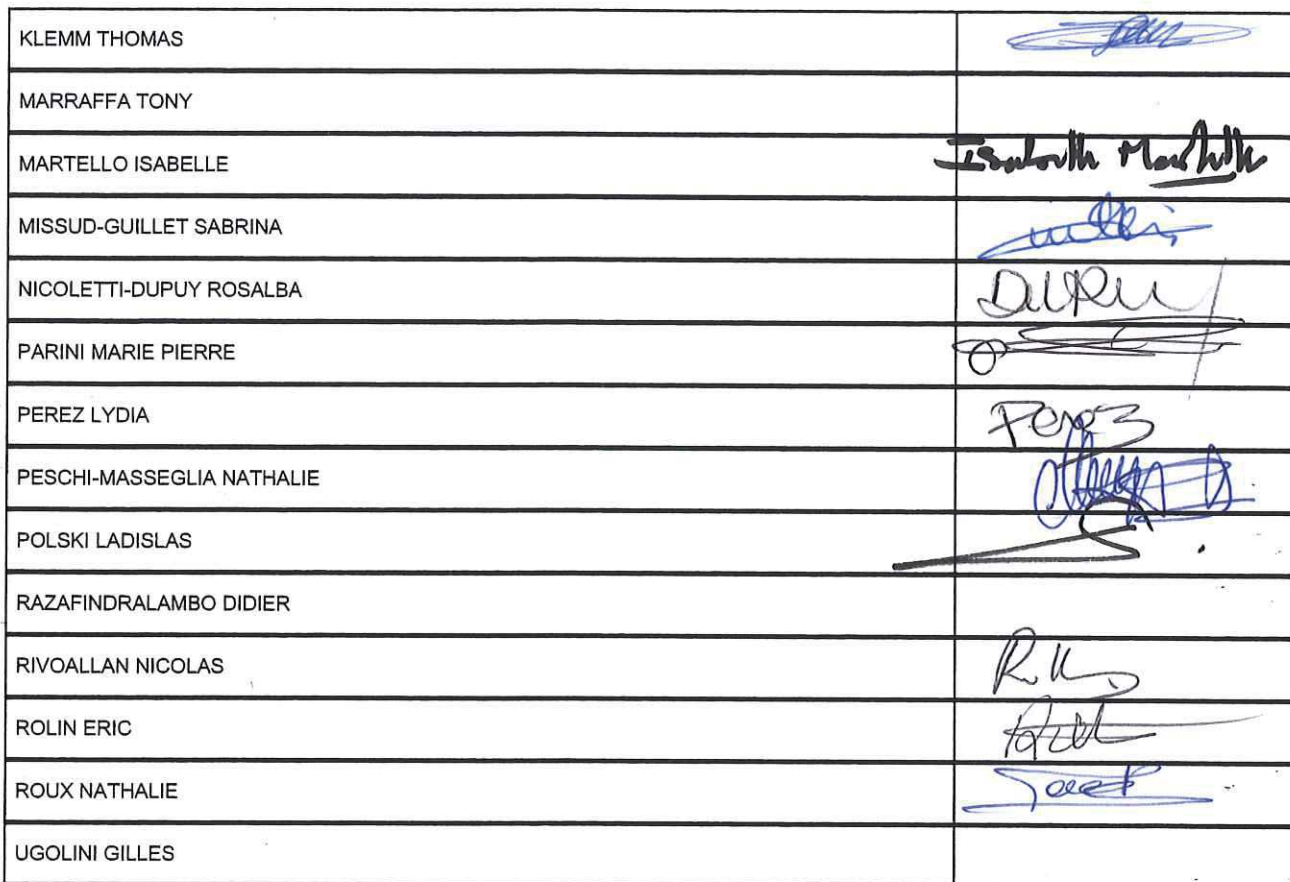 KLEMM THOMAS
MARRAFFA TONY
MARTELLO ISABELLE
Isabelle Martello
MISSUD-GUILLET SABRINA
NICOLETTI-DUPUY ROSALBA
PARINI MARIE PIERRE
PEREZ LYDIA
Perez
PESCHI-MASSEGLIA NATHALIE
POLSKI LADISLAS
RAZAFINDRALAMBO DIDIER
RIVOALLAN NICOLAS
ROLIN ERIC
ROUX NATHALIE
UGOLINI GILLES